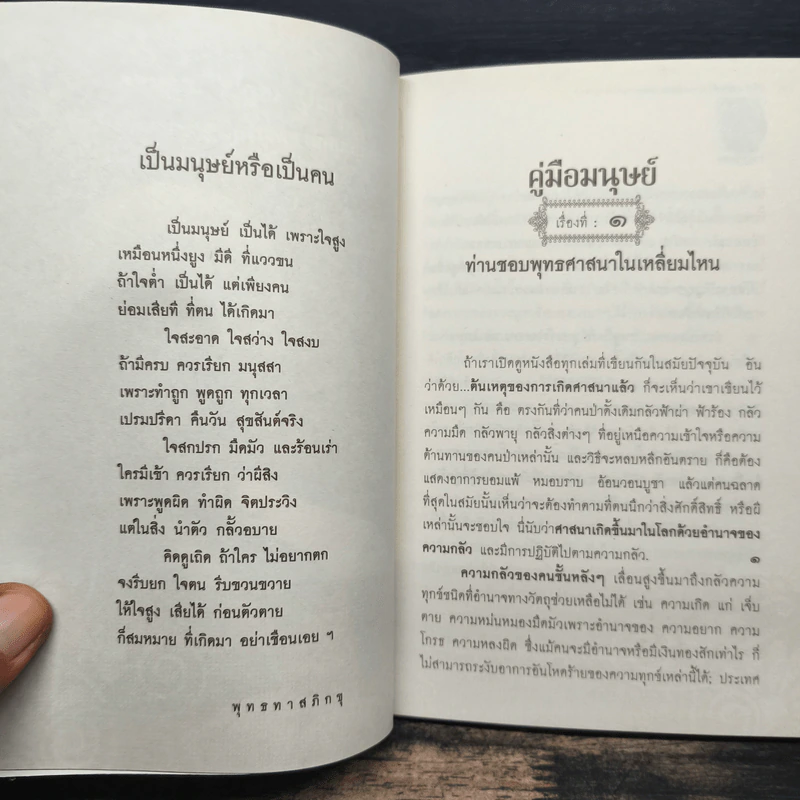 เป็นมนุษย์หรือเป็นคน
เป็นมนุษย์ เป็นได้ เพราะใจสูง
เหมือนหนึ่งยูง มีดี ที่แววขน
ถ้าใจต่ำ เป็นได้ แต่เพียงคน
ย่อมเสียที ที่ตน ได้เกิดมา
ใจสะอาด ใจสว่าง ใจสงบ
ถ้ามีครบ ควรเรียก มนุสสา
เพราะทำถูก พูดถูก ทุกเวลา
เปรมปรีดา คืนวัน สุขสันต์จริง
ใจสกปรก มืดมัว และร้อนเร่า
ใครมีเข้า ควรเรียก ว่าผีสิง
เพราะพูดผิด ทำผิด จิตประวิง
แต่ในสิ่ง นำตัว กลั้วอบาย
คิดดูเถิด ถ้าใคร ไม่อยากตก
จงรีบยก ใจตน รีบขวนขวาย
ให้ใจสูง เสียได้ ก่อนตัวตาย
ก็สมหมาย ที่เกิดมา อย่าเชือนเอย ฯ
พุทธทาสภิกขุ
คู่มือมนุษย์
เรื่องที่ : ๑
ท่านชอบพุทธศาสนาในเหลี่ยมไหน
ถ้าเราเปิดดูหนังสือทุกเล่มที่เขียนกันในสมัยปัจจุบัน อัน
ว่าด้วย...ต้นเหตุของการเกิดศาสนาแล้ว ก็จะเห็นว่าเขาเขียนไว้
เหมือนๆ กัน คือ ตรงกันที่ว่าคนป่าดั้งเดิมกลัวฟ้าผ่า ฟ้าร้อง กลัว
ความมืด กลัวพายุ กลัวสิ่งต่างๆ ที่อยู่เหนือความเข้าใจหรือความ
ต้านทานของคนป่าเหล่านั้น และวิธีจะหลบหลีกอันตราย ก็คือต้อง
แสดงอาการยอมแพ้ หมอบราบ อ้อนวอนบูชา แล้วแต่คนฉลาด
ที่สุดในสมัยนั้นเห็นว่าจะต้องทำตามที่ตนนึกว่าสิ่งศักดิ์สิทธิ์ หรือผี
เหล่านั้นจะชอบใจ นี่นับว่าศาสนาเกิดขึ้นมาในโลกด้วยอำนาจของ
ความกลัว และมีการปฏิบัติไปตามความกลัว. ๑
ความกลัวของคนชั้นหลังๆ เลื่อนสูงขึ้นมาถึงกลัวความ
ทุกข์ชนิดที่อำนาจทางวัตถุช่วยเหลือไม่ได้ เช่น ความเกิด แก่ เจ็บ
ตาย ความหม่นหมองมืดมัวเพราะอำนาจของ ความอยาก ความ
โกรธ ความหลงผิด ซึ่งแม้คนจะมีอำนาจหรือมีเงินทองสักเท่าไร ก็
ไม่สามารถระงับอาการอันโหดร้ายของความทุกข์เหล่านี้ได้; ประเทศ